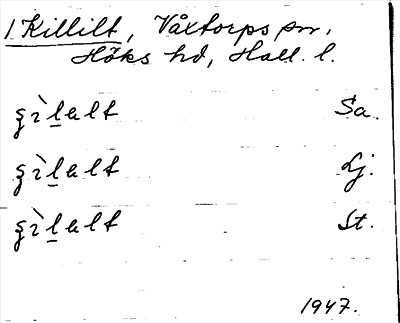 1 Killilt, Våxtorps sn.
Höks hd, Hall. l.
ʂìlalt Sa.
ʂìlalt Lj.
ʂìlalt St.
1947.